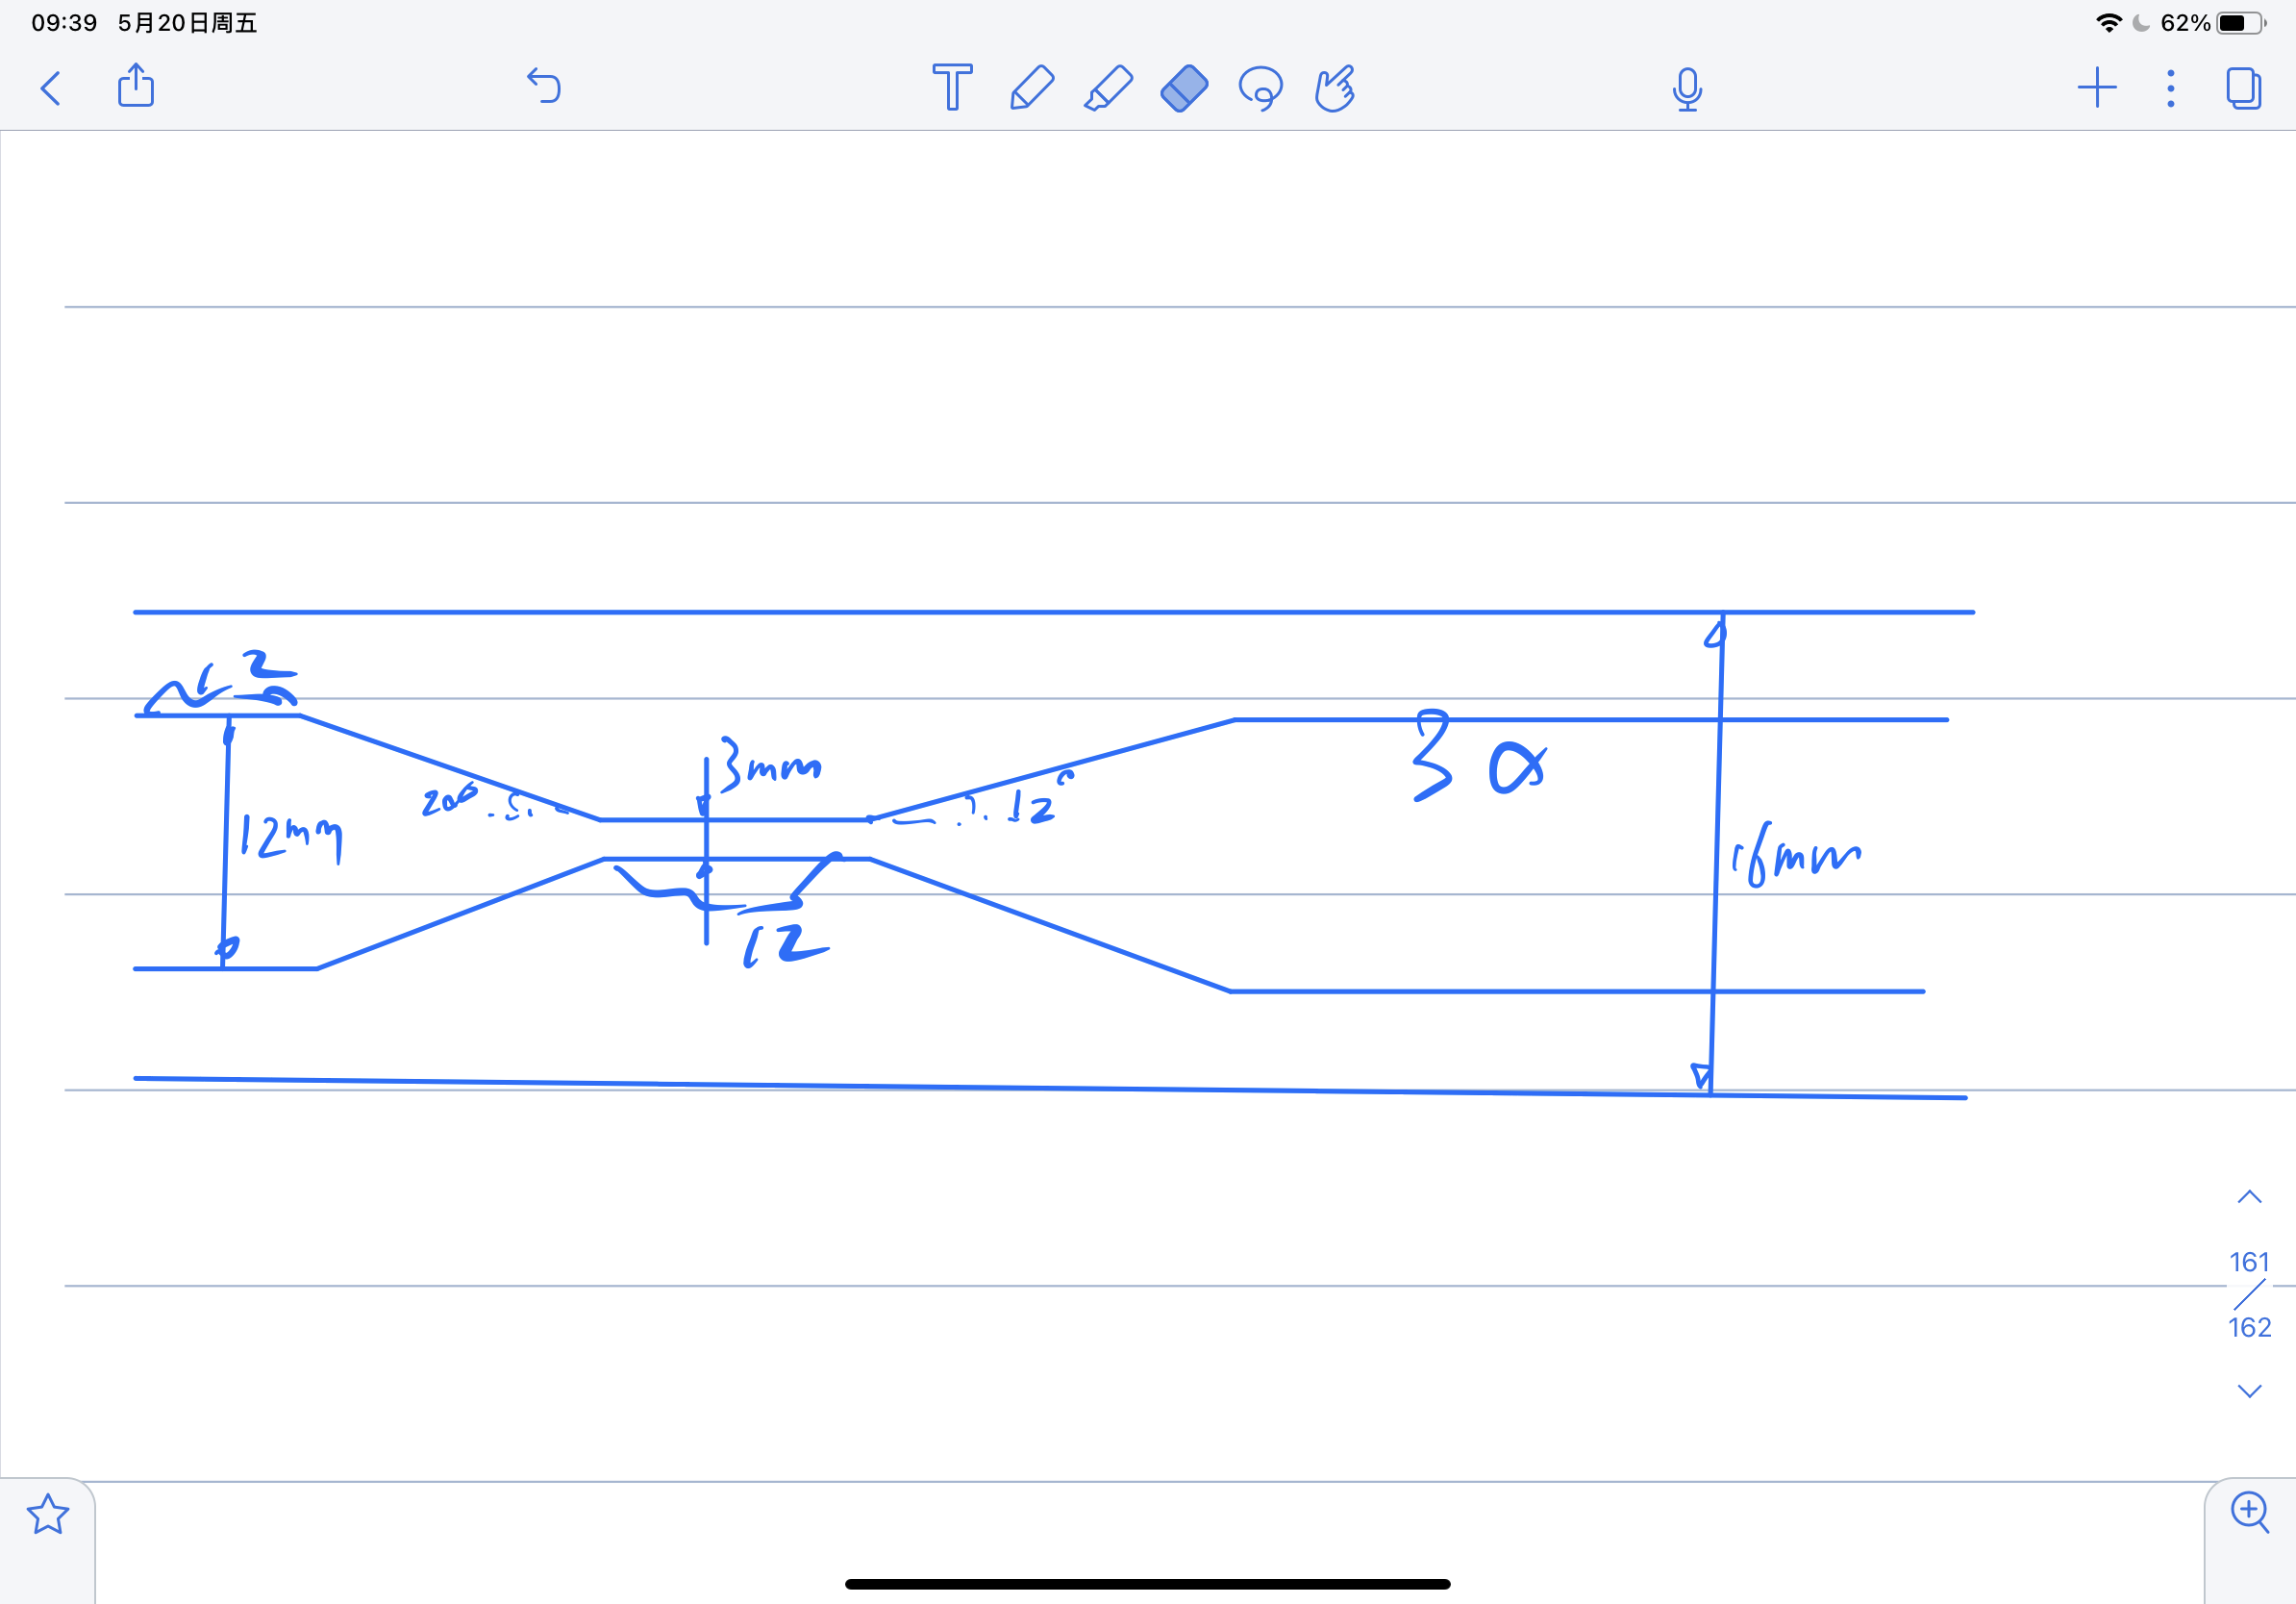 09:39 5月20日周五
62%
12
3mm
20°
12°
3
α
12mm
12
161
162